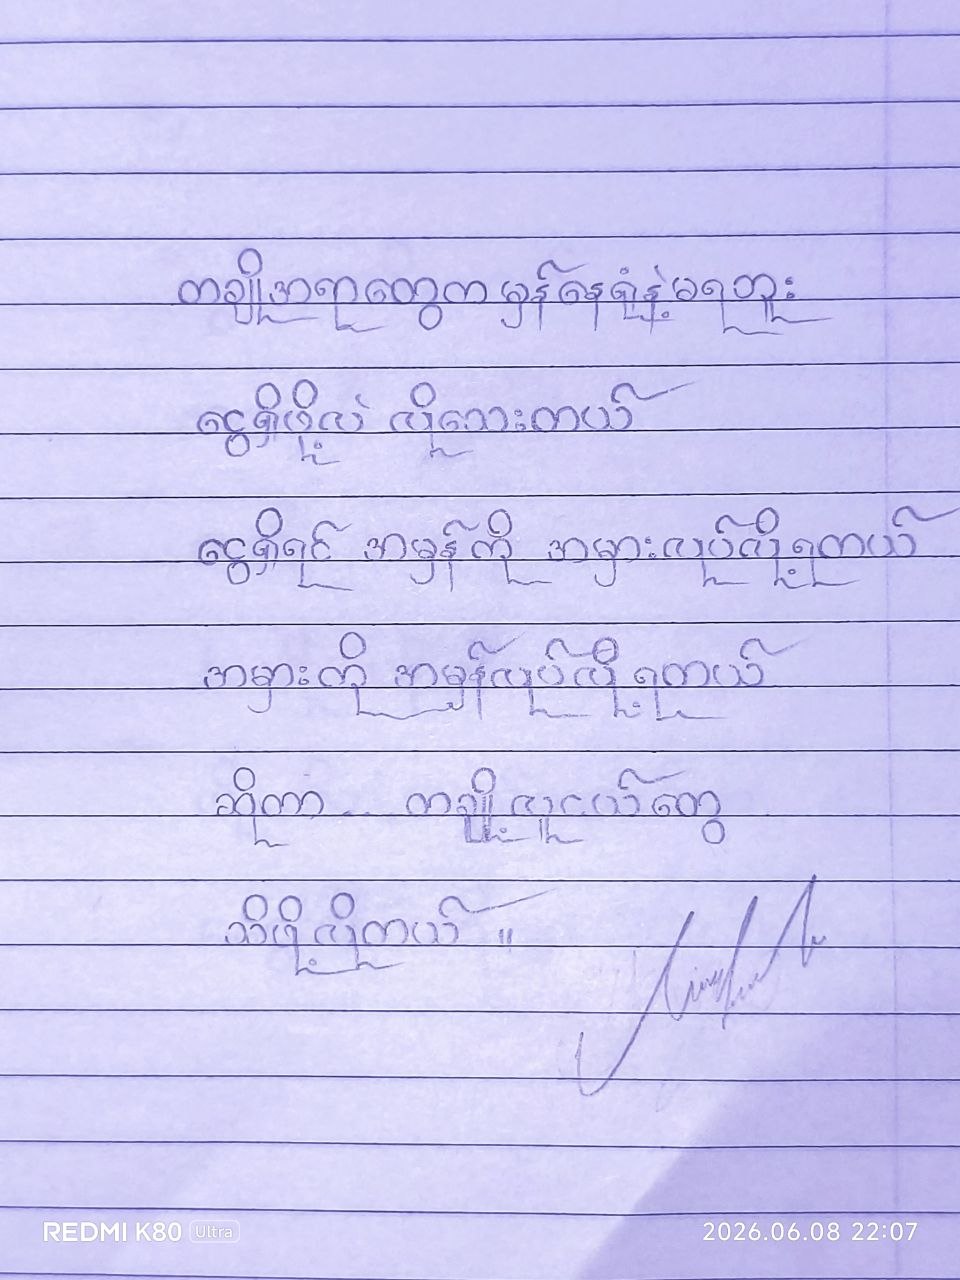 တချို့အရာတွေက မှန်နေရုံနဲ့မရဘူး
ငွေရှိဖို့လဲ လိုသေးတယ်
ငွေရှိရင် အမှန်ကို အမှားလုပ်လို့ရတယ်
အမှားကို အမှန်လုပ်လို့ရတယ်
ဆိုတာ .... တချို့လူငယ်တွေ
သိဖို့လိုတယ် ။
REDMI K80 Ultra
2026.06.08 22:07